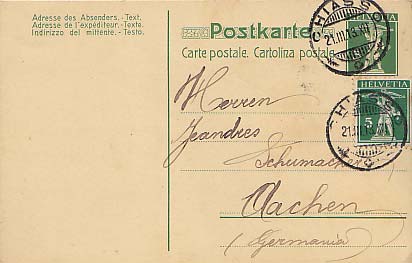 Adresse des Absenders.-Text.
Adresse de l'expéditeur.-Texte.
Indirizzo del mittente.-Testo.
Postkarte
Carte postale. Cartolina postale.
CHIASSO
21.III.13
HELVETIA
5
CHIASSO
21.III.13
Herren
Jeandres
Schumacher
Aachen
(Germania)